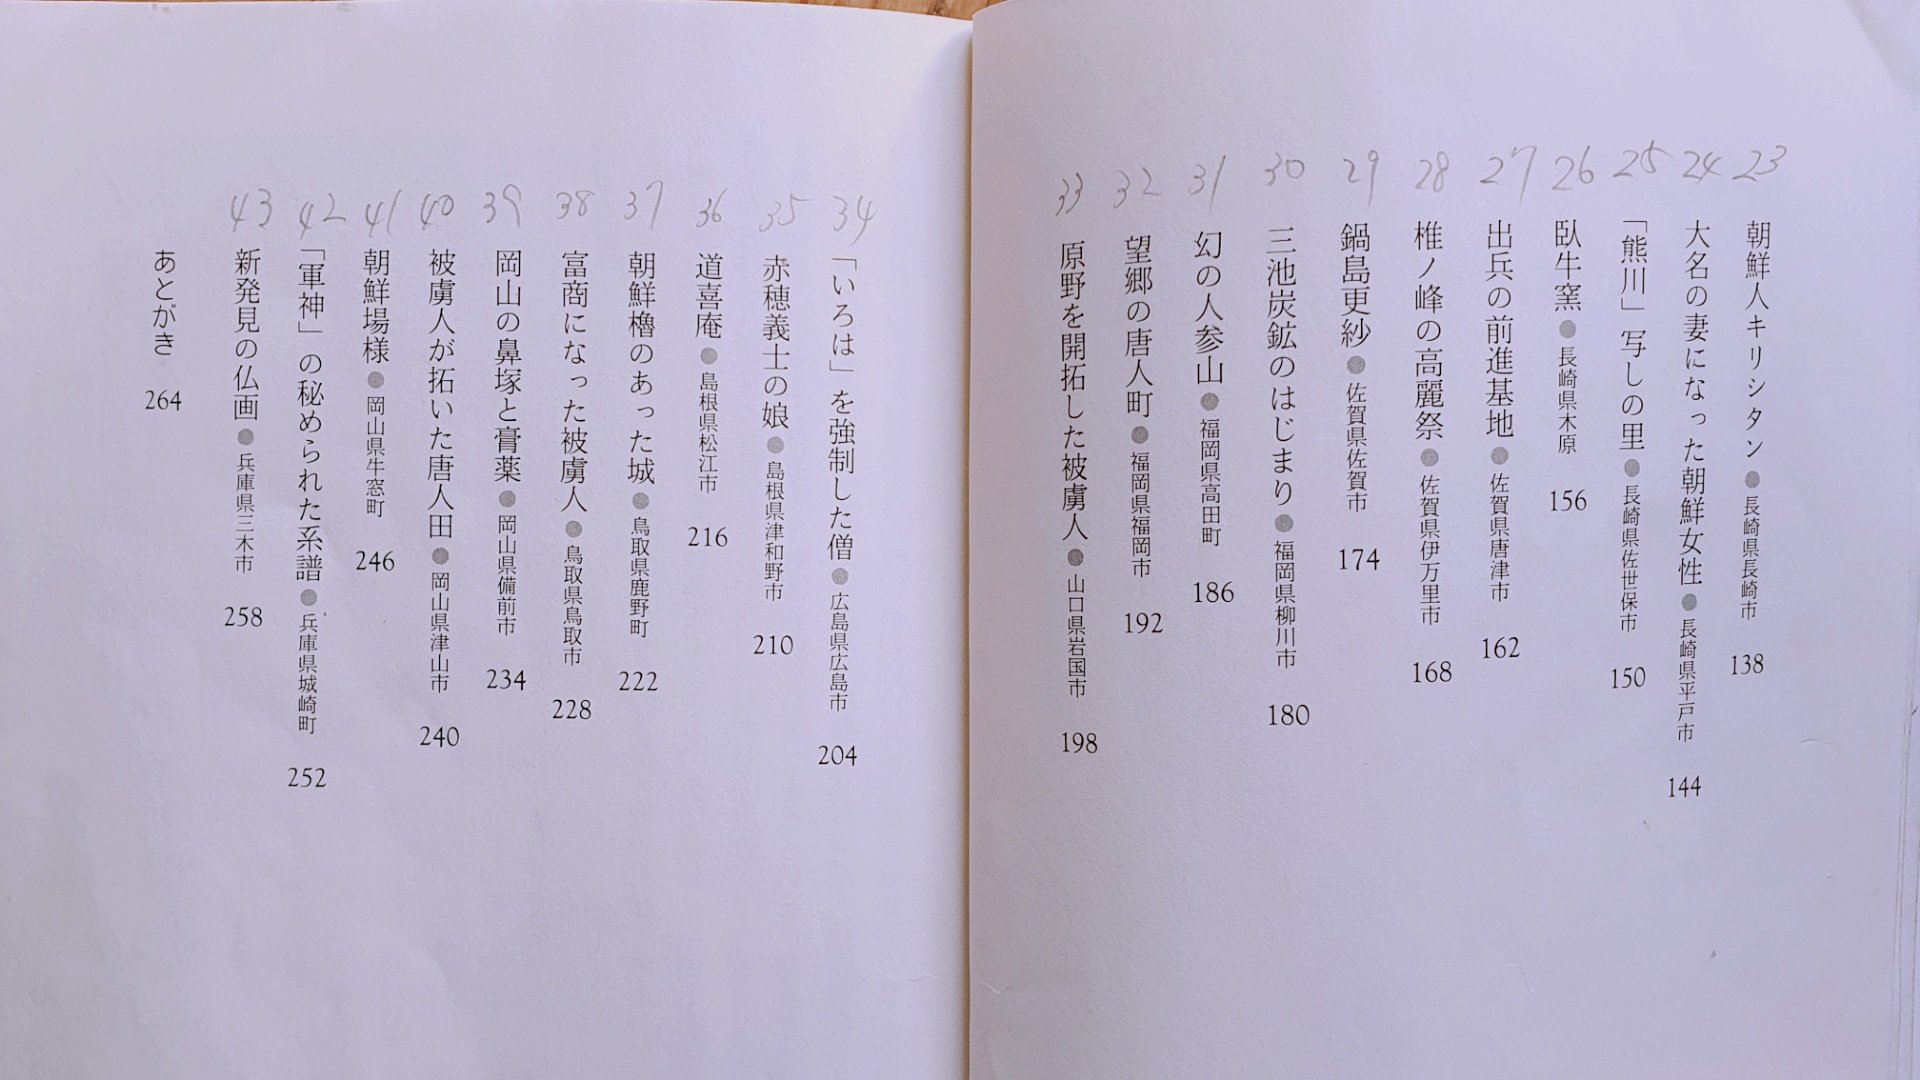 23 朝鮮人キリシタン●長崎県長崎市 138
24 大名の妻になった朝鮮女性●長崎県平戸市 144
25 「熊川」写しの里●長崎県佐世保市 150
26 臥牛窯●長崎県木原 156
27 出兵の前進基地●佐賀県唐津市 162
28 椎ノ峰の高麗祭●佐賀県伊万里市 168
29 鍋島更紗●佐賀県佐賀市 174
30 三池炭鉱のはじまり●福岡県柳川市 180
31 幻の人参山●福岡県高田町 186
32 望郷の唐人町●福岡県福岡市 192
33 原野を開拓した被虜人●山口県岩国市 198
34 「いろは」を強制した僧●広島県広島市 204
35 赤穂義士の娘●島根県津和野市 210
36 道喜庵●島根県松江市 216
37 朝鮮櫓のあった城●鳥取県鹿野町 222
38 富商になった被虜人●鳥取県鳥取市 228
39 岡山の鼻塚と膏薬●岡山県備前市 234
40 被虜人が拓いた唐人田●岡山県津山市 240
41 朝鮮場様●岡山県牛窓町 246
42 「軍神」の秘められた系譜●兵庫県城崎町 252
43 新発見の仏画●兵庫県三木市 258
あとがき 264